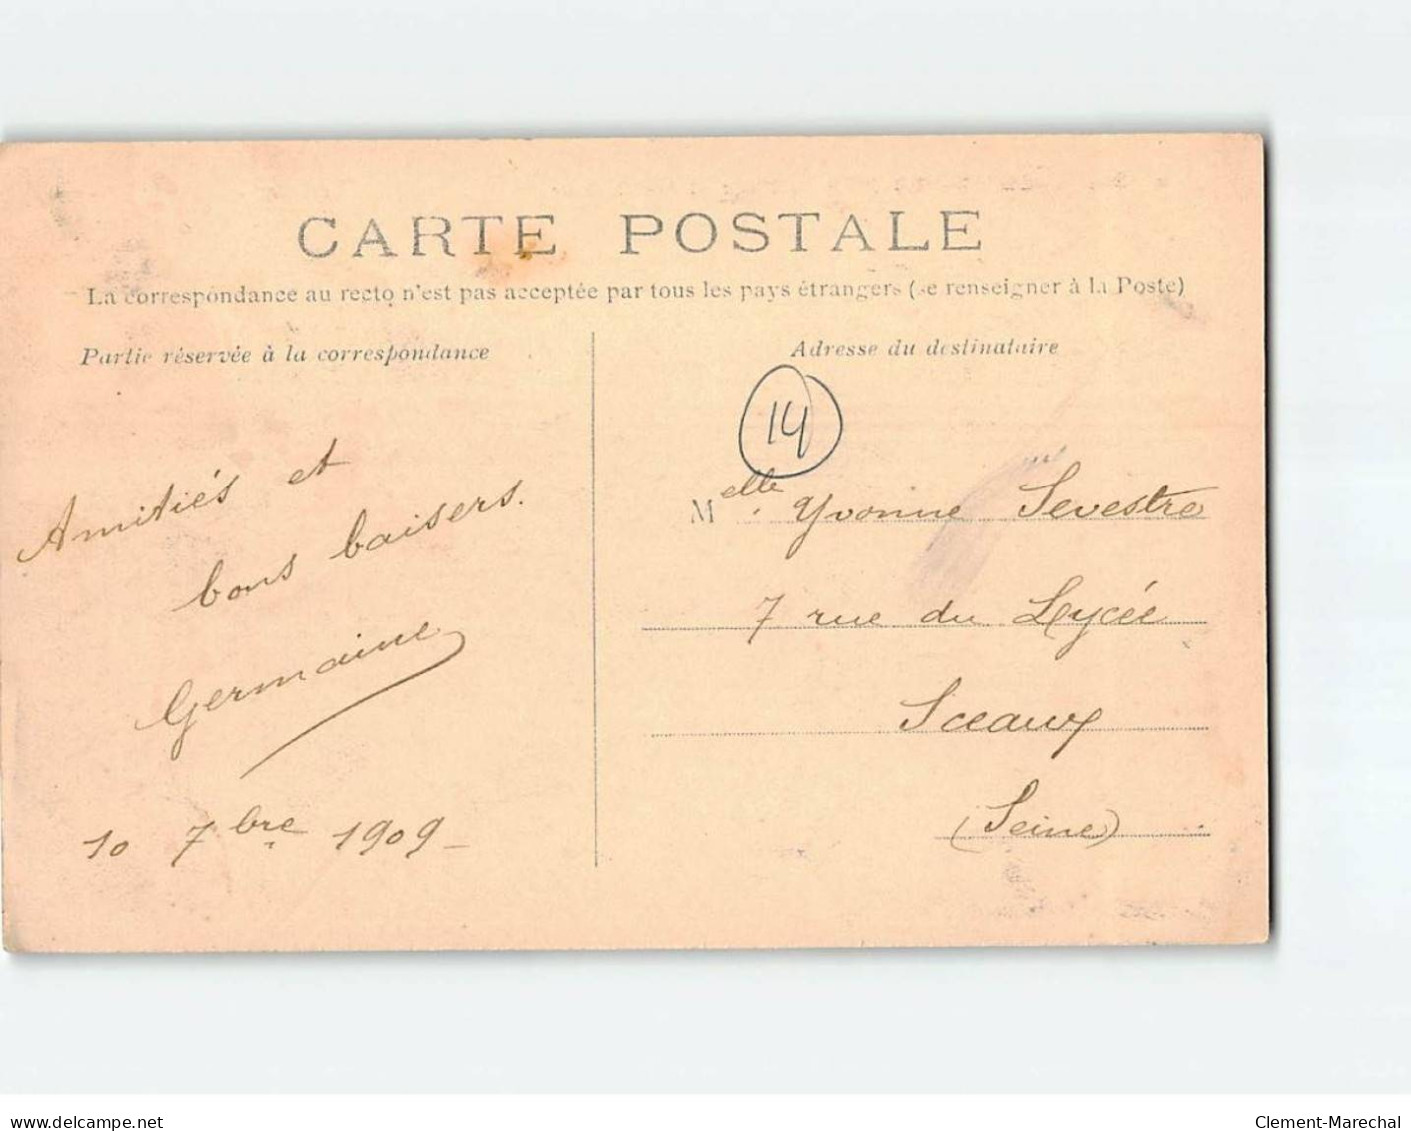 CARTE POSTALE
La correspondance au recto n'est pas acceptée par tous les pays étrangers (se renseigner à la Poste)
Partie réservée à la correspondance
Amitiés et
bons baisers.
Germaine
10 7bre 1909
Adresse du destinataire
14
Melle Yvonne Sevestre
7 rue du Lycée
Sceaux
(Seine)
www.delcampe.net
Clement-Marechal